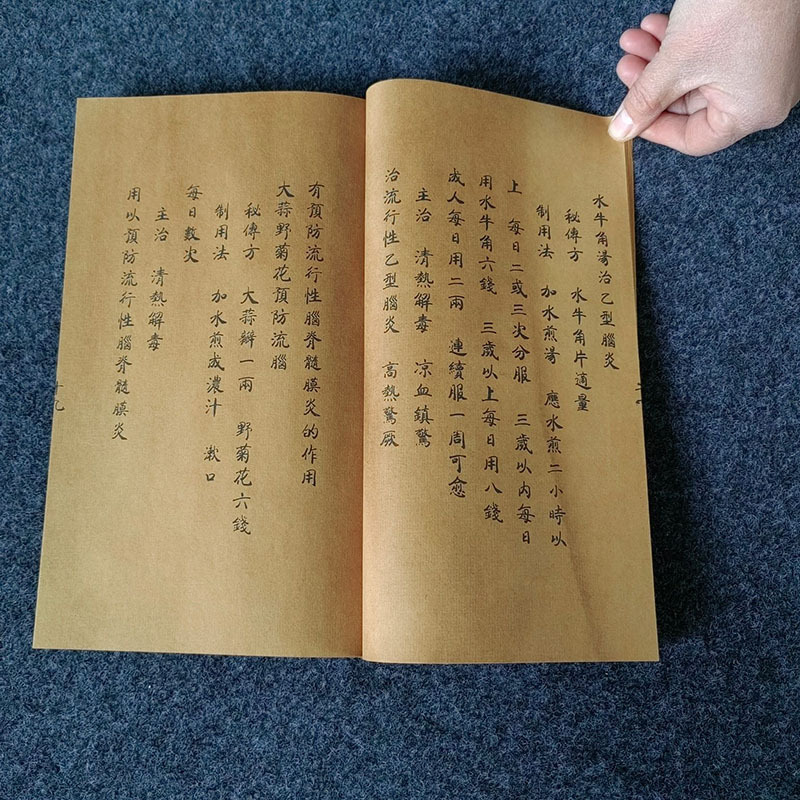 水牛角湯治乙型腦炎
秘傳方 水牛角片適量
制用法 加水煎湯 應水煎二小時以
上 每日二或三次分服 三歲以内每日
用水牛角六錢 三歲以上每日用八錢
成人每日用二兩 連續服一周可愈
主治 清熱解毒 凉血鎮驚
治流行性乙型腦炎 高熱驚厥
有預防流行性腦脊髓膜炎的作用
大蒜野菊花預防流腦
秘傳方 大蒜瓣一兩 野菊花六錢
制用法 加水煎成濃汁 漱口
每日數次
主治 清熱解毒
用以預防流行性腦脊髓膜炎